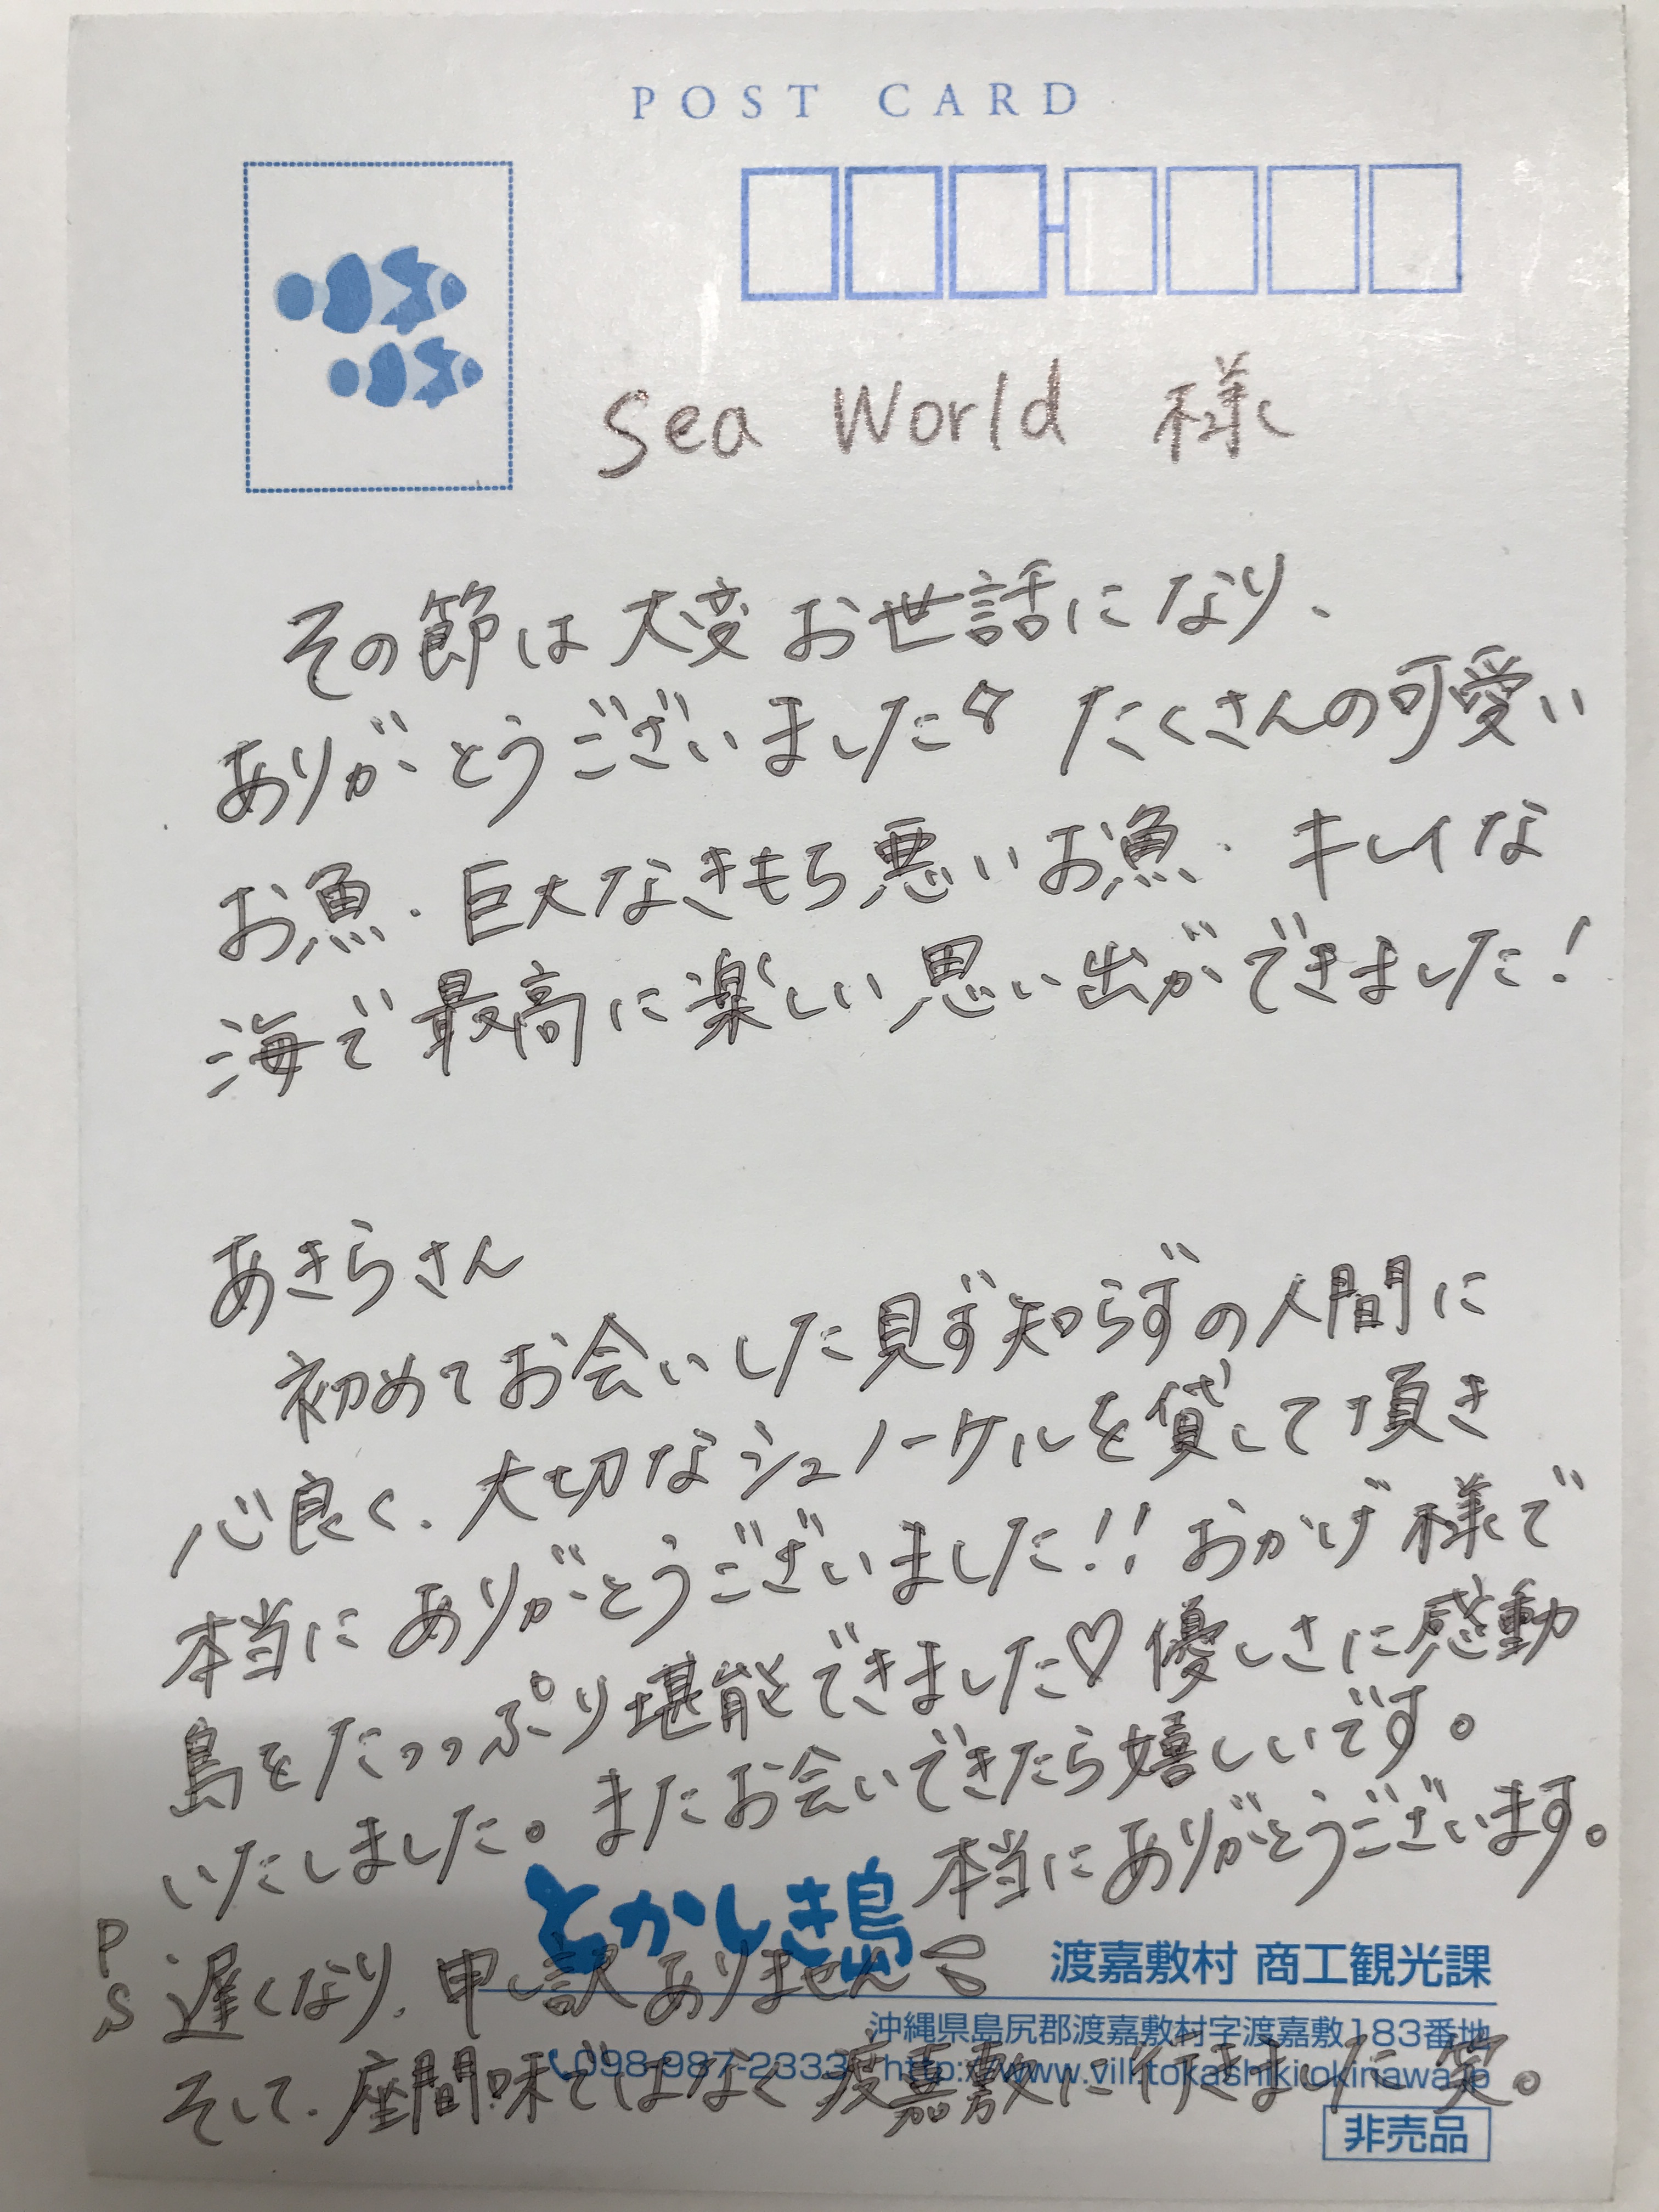 POST CARD
Sea World 様
その節は大変お世話になり、
ありがとうございました たくさんの可愛い
お魚、巨大なきもち悪いお魚、キレイな
海で最高に楽しい思い出ができました!
あきらさん
初めてお会いした見ず知らずの人間に
心良く、大切なシュノーケルを貸して頂き
本当にありがとうございました!! おかげ様で
島をたっっぷり堪能できました♡優しさに感動
いたしました。またお会いできたら嬉しいです。
本当にありがとうございます。
とかしき島
PS 遅くなり、申し訳ありません
渡嘉敷村 商工観光課
沖縄県島尻郡渡嘉敷村字渡嘉敷183番地
098-987-2333 http://www.vill.tokashiki.okinawa.jp
そして、座間味ではなく渡嘉敷に行きました笑。
非売品